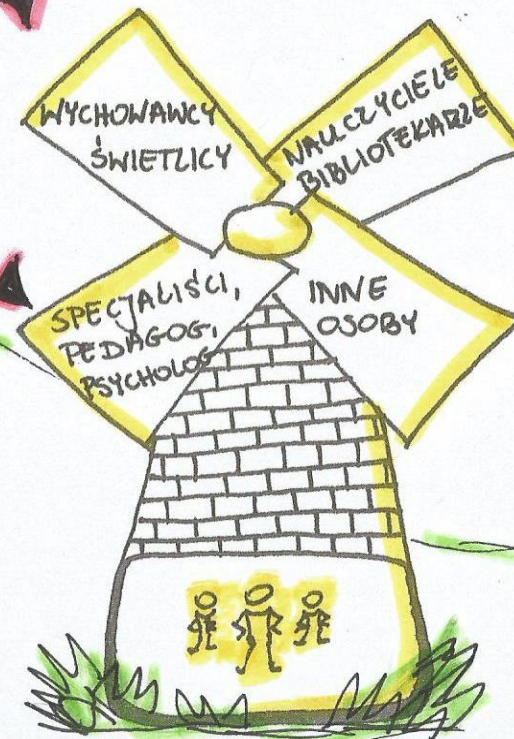 WYCHOWAWCY
ŚWIETLICY
NAUCZYCIELE
BIBLIOTEKARZE
SPECJALIŚCI,
PEDAGOG,
PSYCHOLOG
INNE
OSOBY